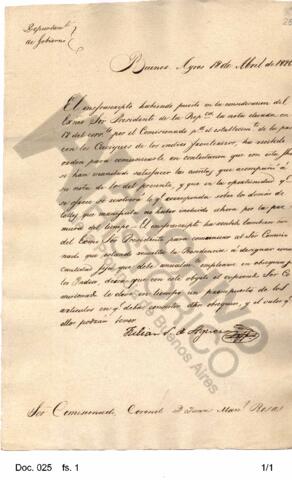 Departamto
de Gobierno
Buenos Ayres 18 de Abril de 1826
El infrascripto habiendo puesto en la consideracion del
Exmo Sor Presidente de la Repca la nota elevada en
17 del corrte por el Comisionado pa el establecimto de la paz
con los Caciques de los indios fronterizos, ha recibido
orden para comunicarle en contestacion que con esta fha
se han mandado satisfacer las cuentas que acompañó á
su nota de            del presente, y que en la oportunidad
                    lo qe corresponda sobre la demás de
               que manifiesta no haber incluido ahora por la pre-
mura del tiempo. El infrascripto ha recibido tambien orn
del Exmo Sor Presidente para comunicar al Sor Comisio-
nado que estando resuelta la Providencia á designar una
Cantidad fija que debe anualmte emplearse en obsequio
los Indios, desea que con este objeto el espresado Sor Co-
misionado le eleve con tiempo un presupuesto de los
articulos en qe deban consistir dhos obsequios, y el valor qe
ellos podrán tener.
Julian S. de Agüero
Sor Comisionado Coronel D. Juan Manl Rosas
ARCHIVO
HISTORICO
Buenos Aires
Doc. 025 fs. 1
1/1